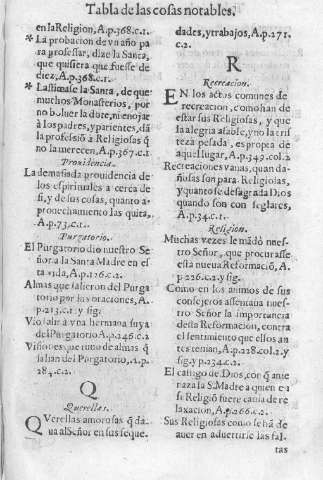 Tabla de las cosas notables.
en la Religion, A.p.368.c.1.
* La probacion de vn año pa
ra professar, dize la Santa,
que quisiera que fuesse de
diez, A.p.368.c.1.
* Lastimase la Santa, de que
muchos Monasterios, por
no boluer la dote, ni enojar
à los padres, y parientes, dã
la professiõ à Religiosas q̃
no la merecen, A.p.367.c.1
Prouidencia.
La demasiada prouidencia de
los espirituales a cerca de
si, y de sus cosas, quanto a-
prouechamiento las quita,
A.p.73.c.1.
Purgatorio.
El Purgatorio dio nuestro Se
ñor a la Santa Madre en es
ta vida, A.p.126.c.2.
Almas que salieron del Purga
torio por sus oraciones, A.
p.213.c.1.y sig.
Vio salir a vna hermana suya
del Purgatorio A.p.246.c.2
Visiones que tuuo de almas q̃
salian del Purgatorio, A.p.
284.c.2.
Q
Querellas.
QVerellas amorosas q̃ da-
ua al Señor en sus seque-
dades, y trabajos, A.p.271.
c.2.
R
Recreacion.
EN los actos comunes de
recreacion, como han de
estar sus Religiosas, y que
la alegria afable, y no la tris
teza pesada, es propia de
aquel lugar, A.p.349.col.2
Recreaciones vanas, quan da-
ñosas son para Religiosas,
y quanto se desagrada Dios
quando son con seglares,
A.p.34.c.1.
Religion.
Muchas vezes le mãdò nues-
tro Señor, que procurasse
esta nueua Reformaciõ, A.
p.226.c.2.y sig.
Como en los animos de sus
consejeros assentaua nues-
tro Señor la importancia
desta Reformacion, contra
el sentimiento que ellos an
tes tenian, A.p.228.col.2.y
sig.y p.234.c.2.
El castigo de Dios, con q̃ ame
naza la S. Madre a quien en su
Religiõ fuere causa de re
laxacion, A.p.266.c.2.
Sus Religiosas como se hã de
auer en aduertirle las fal-
tas